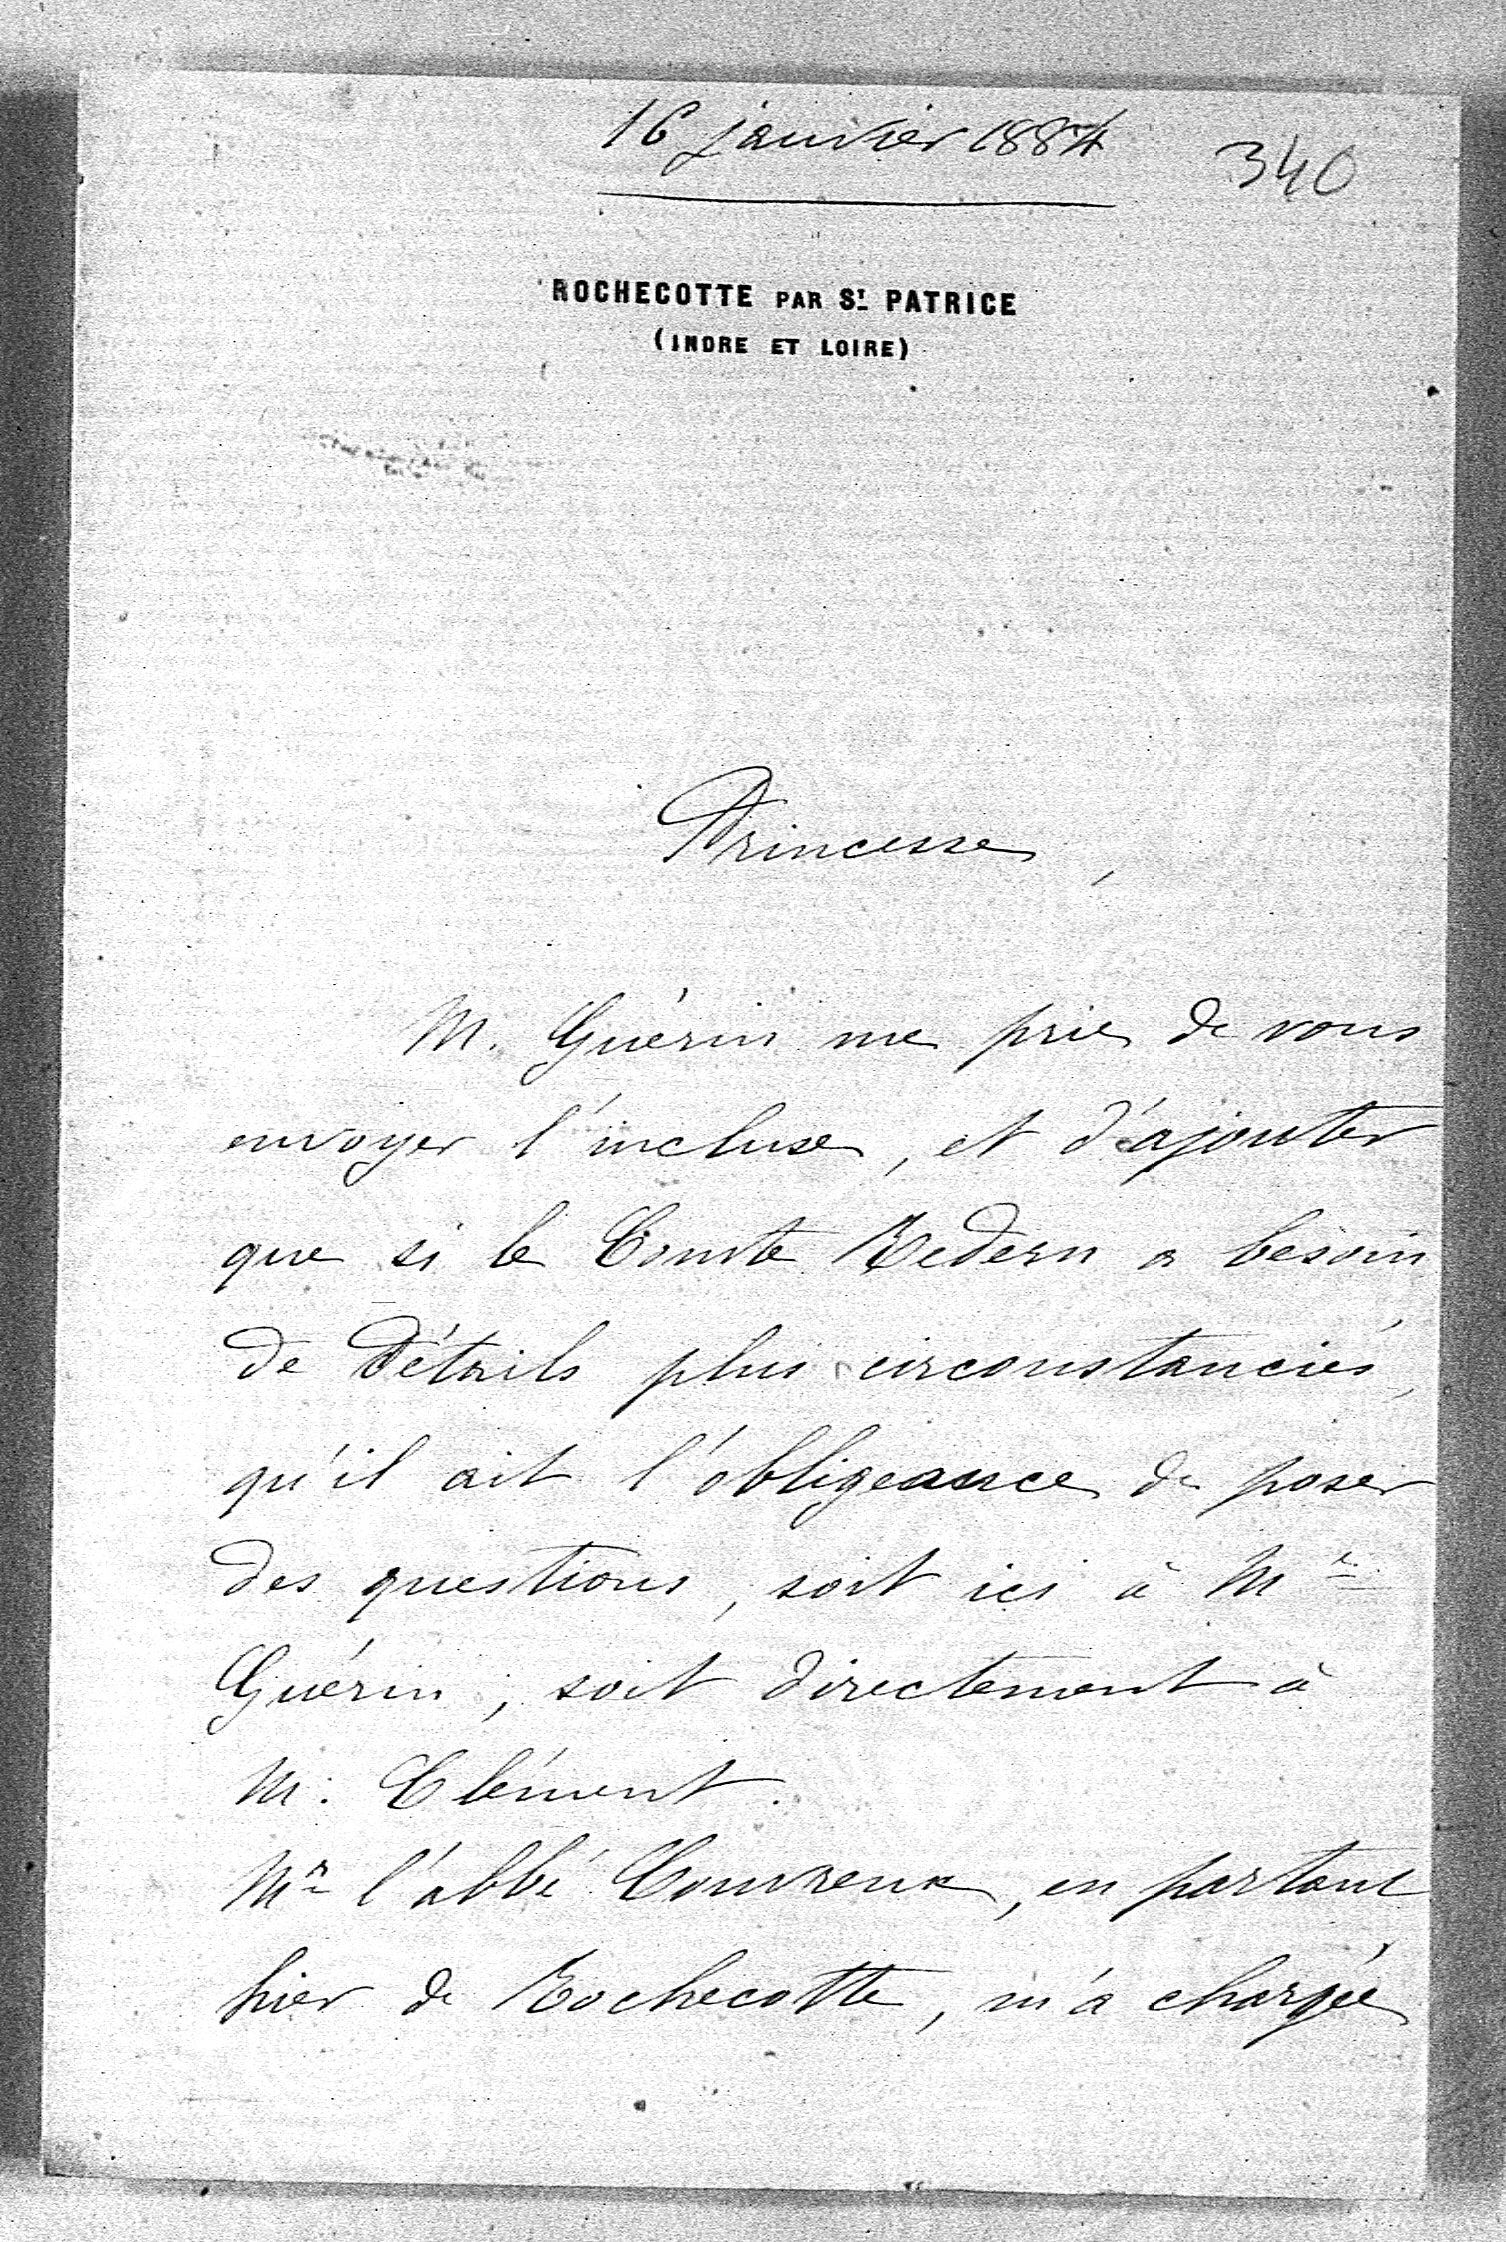 16 janvier 1884
340
ROCHECOTTE PAR ST PATRICE
(INDRE ET LOIRE)
Princesse,
M. Guérin me prie de vous
envoyer l'incluse, et d'ajouter
que si le Comte Redern a besoin
de détails plus circonstanciés,
qu'il ait l'obligeance de poser
des questions, soit ici à Mr
Guérin, soit directement à
M. Clément.
Mr l'abbé Couvreux, en partant
hier de Rochecotte, m'a chargée